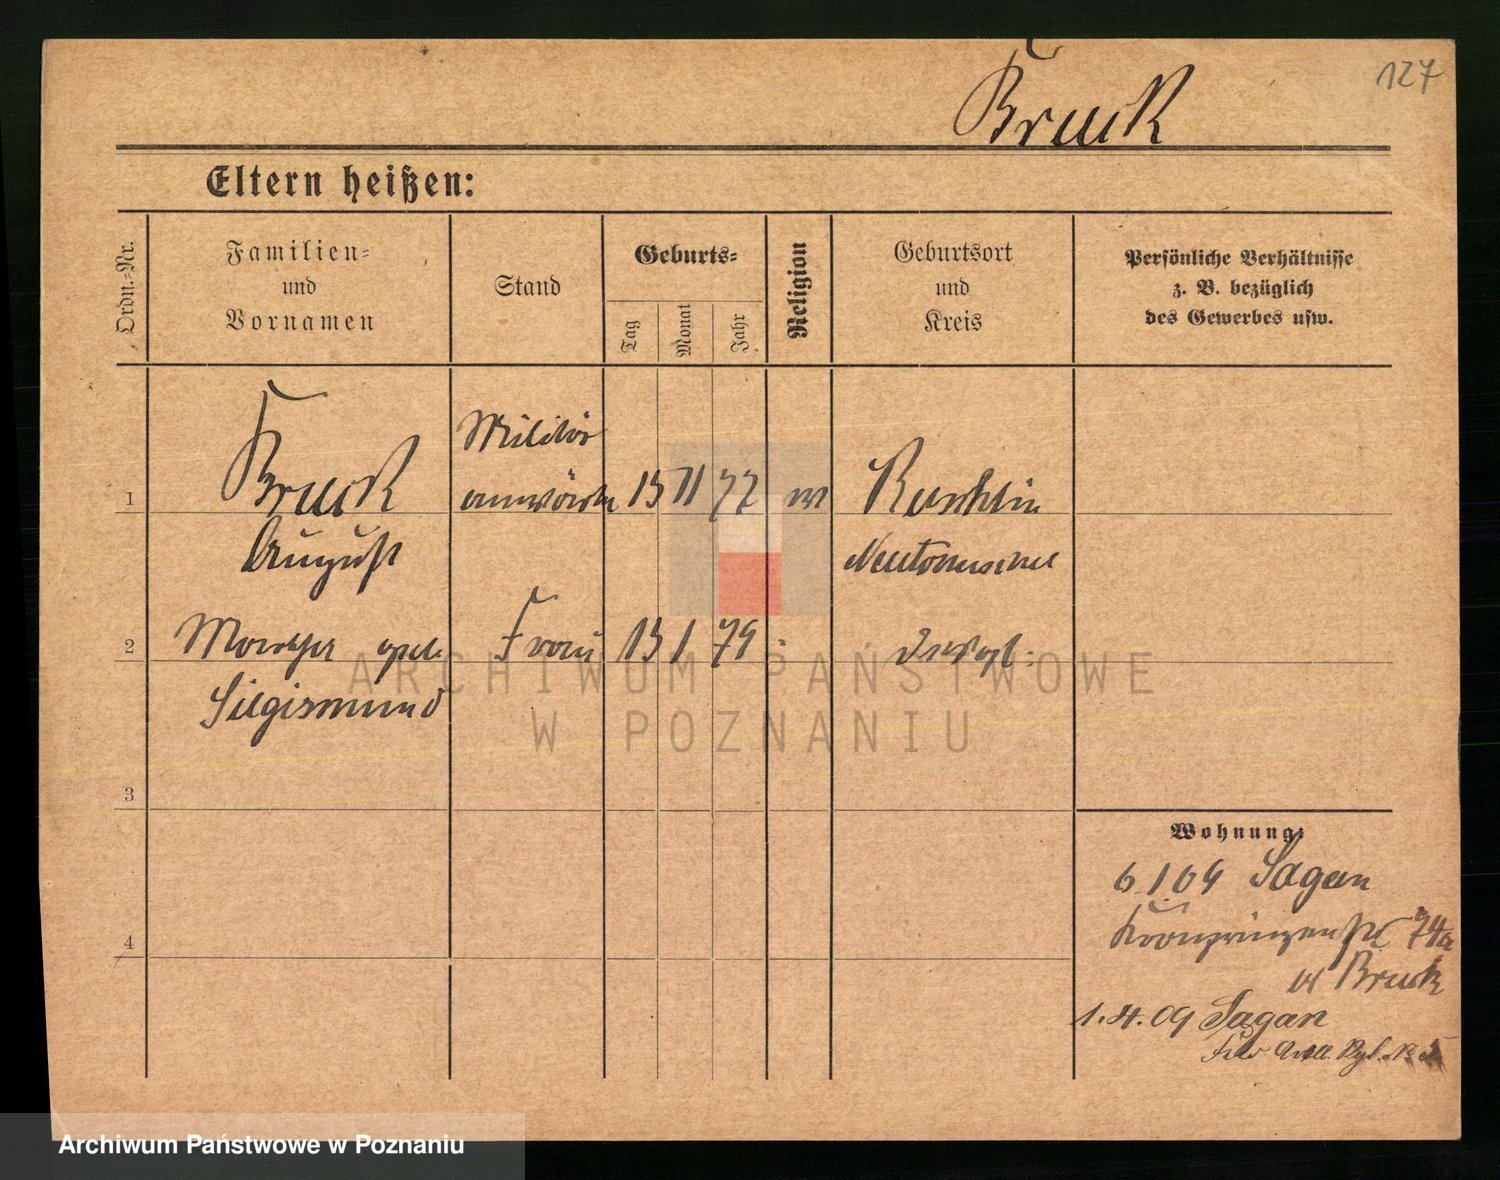 127
Bruck
Eltern heißen:
Ordn.=Nr.
Familien=
und
Vornamen
Stand
Geburts=
Tag
Monat
Jahr
Religion
Geburtsort
und
Kreis
Persönliche Verhältnisse
z. B. bezüglich
des Gewerbes usw.
Militär
1 Bruck anwärter 15 11 77
August
Neutomischel
2 Frau 13 1 79
Siegismund
3
4
Wohnung:
6 1 09 Sagan
Kronprinzenstr 74a
Bruck
1.4.09 Sagan
Feld Artll. Rgt. No 5
ARCHIWUM PAŃSTWOWE
W POZNANIU
Archiwum Państwowe w Poznaniu